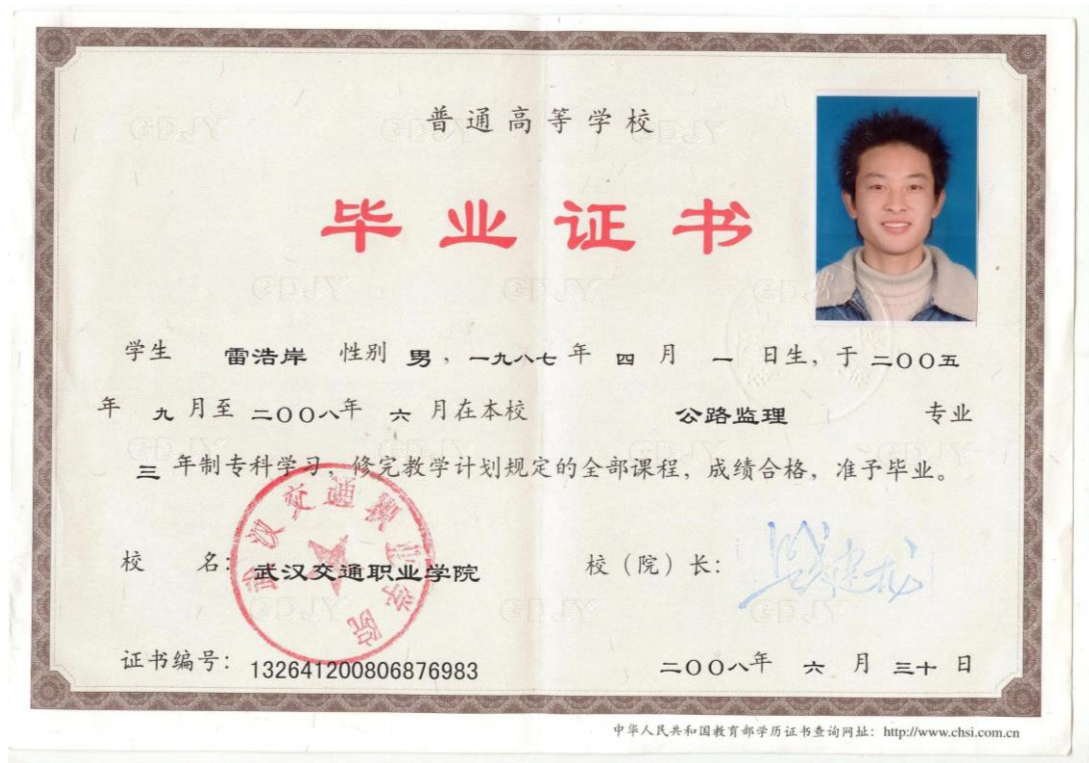 普通高等学校
毕业证书
学生 雷浩岸 性别 男，一九八七 年 四 月 一 日生，于 二〇〇五
年 九 月至 二〇〇八年 六 月在本校 公路监理 专业
三 年制专科学习，修完教学计划规定的全部课程，成绩合格，准予毕业。
武汉交通职业学院
校 名：武汉交通职业学院 校（院）长：
证书编号：132641200806876983 二〇〇八年 六 月 三十 日
中华人民共和国教育部学历证书查询网址：http://www.chsi.com.cn